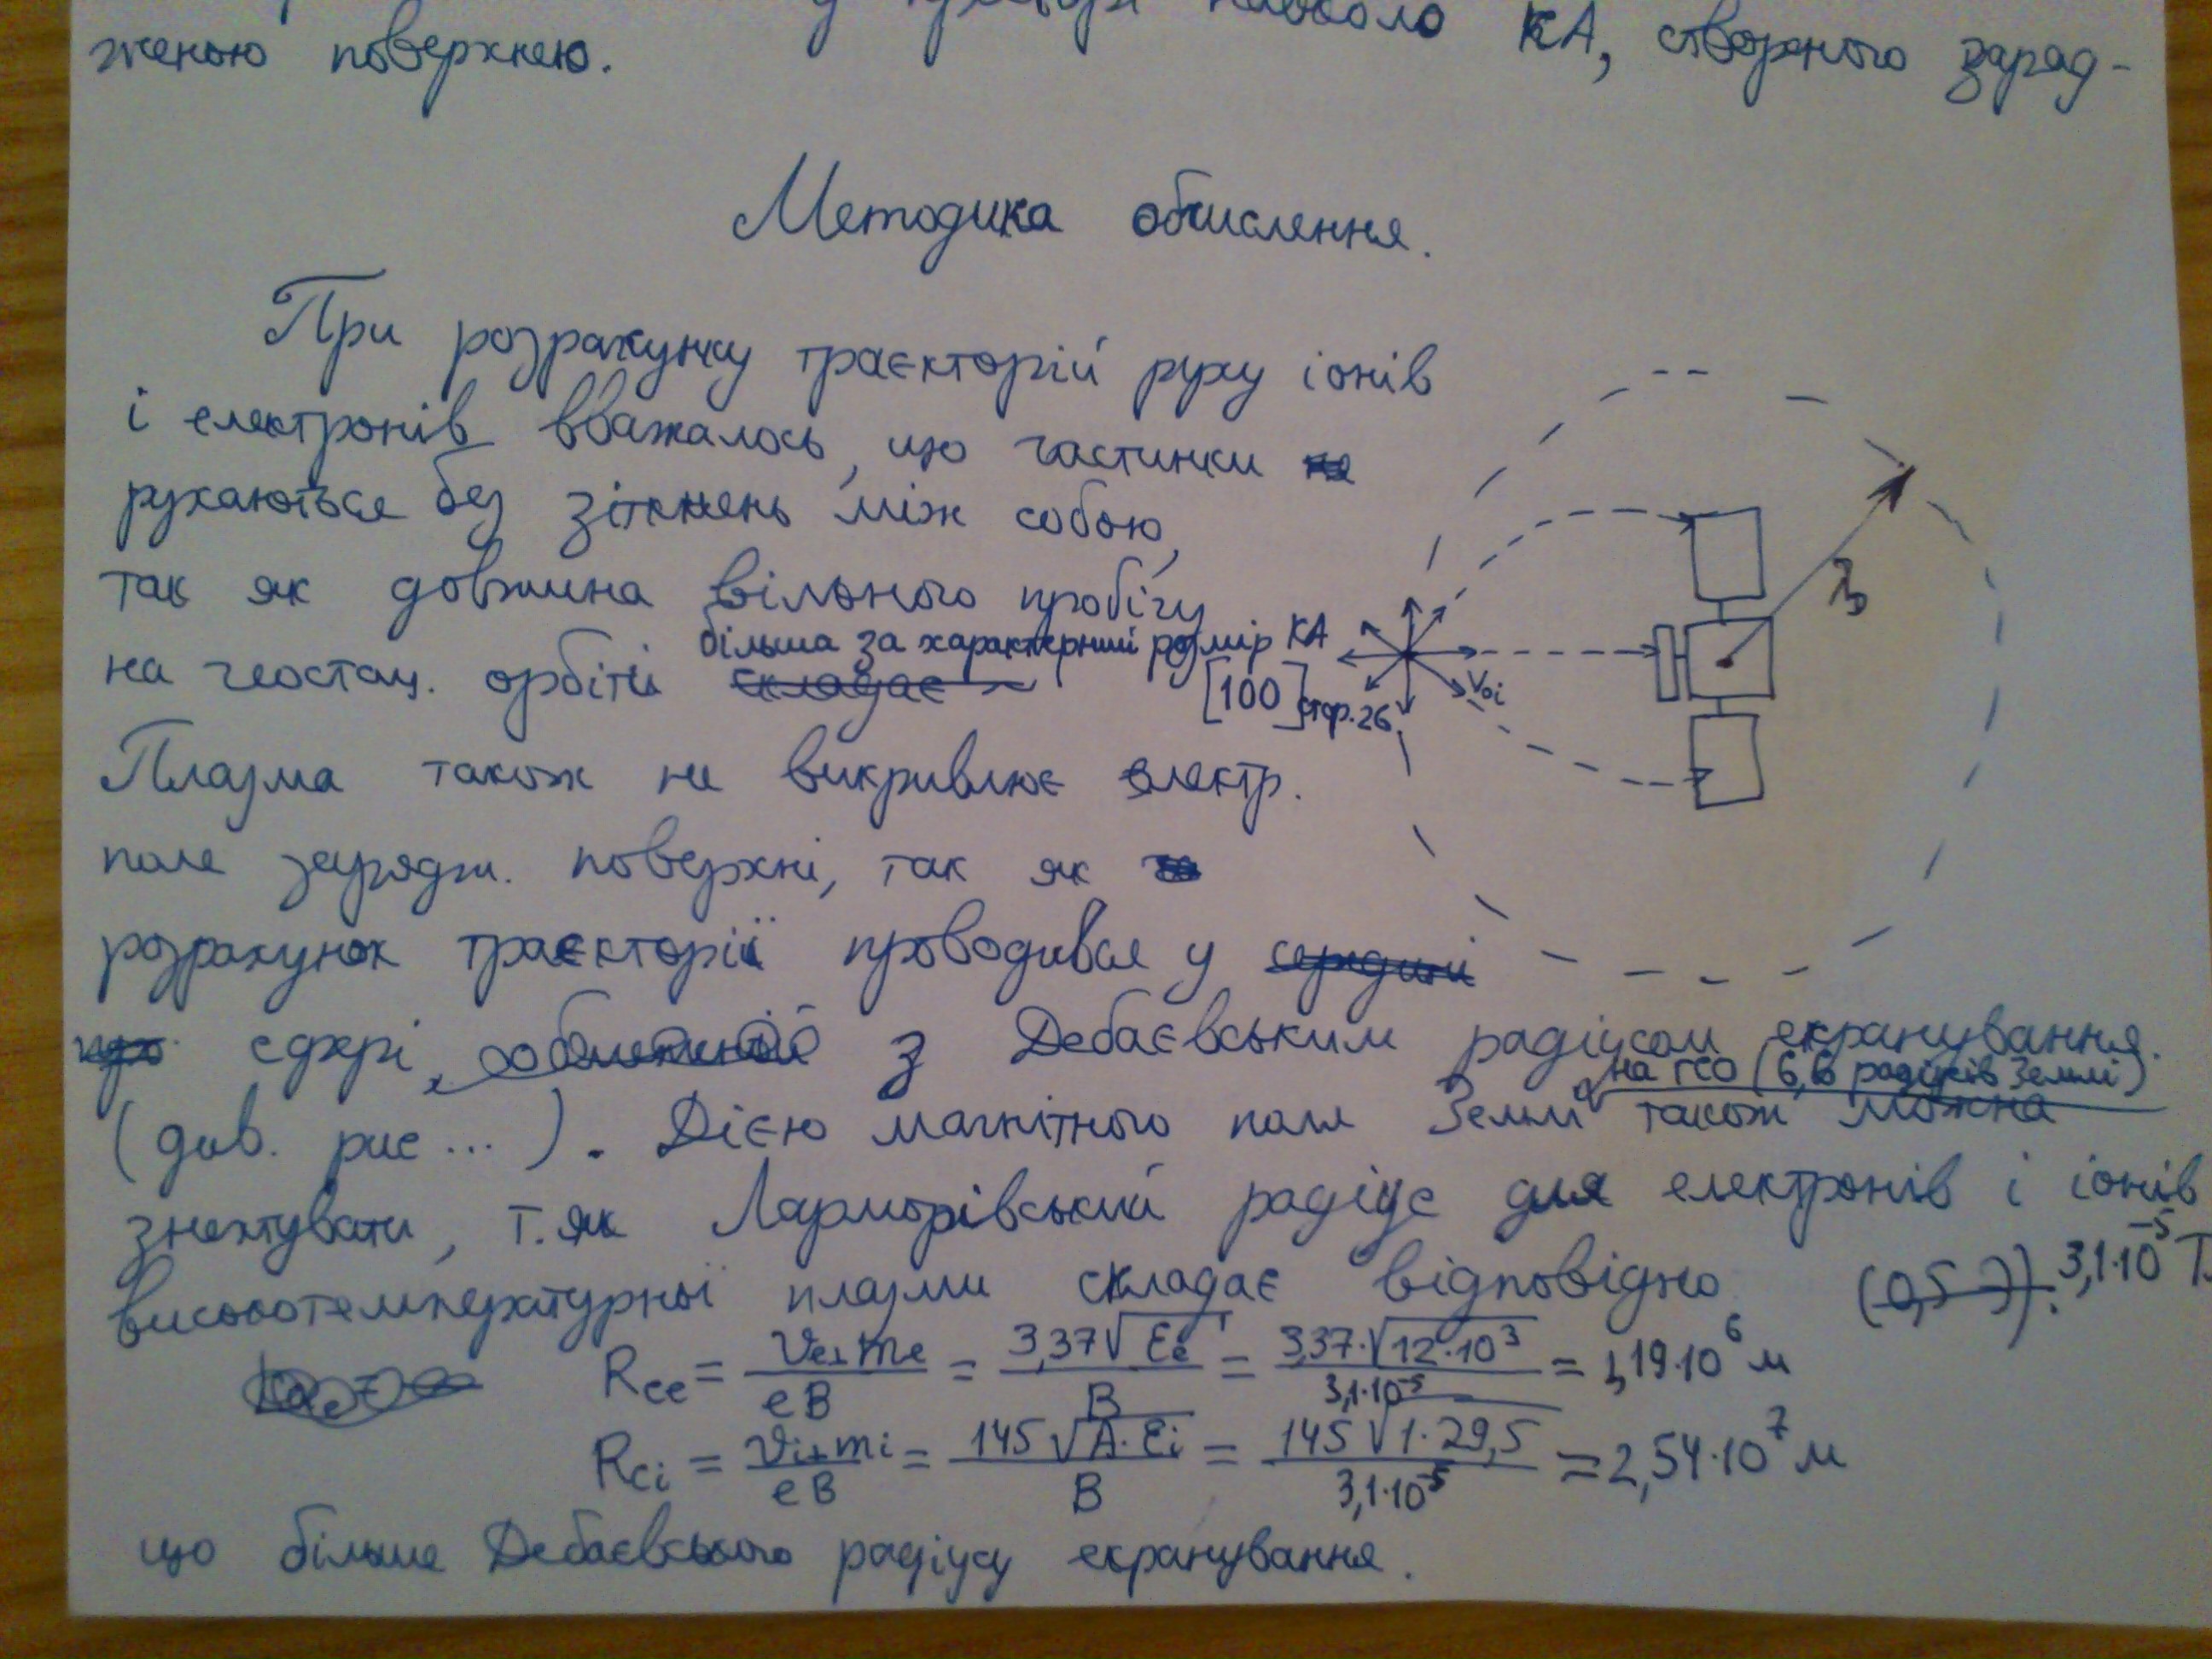 у навколо КА, створеного заряд-
женою поверхнею.
Методика обчислення.
При розрахунку траєкторій руху іонів
і електронів вважалось, що частинки
рухаються без зіткнень між собою,
так як довжина вільного пробігу
більша за характерний розмір КА
на геостац. орбіті складає [100] стор. 26
Плазма також не викривлює електр.
поле зарядж. поверхні, так як
розрахунок траєкторій проводився у середині
сфері, з Дебаєвським радіусом екранування.
на ГСО (6,6 радіусів Землі)
(див. рис ...). Дією магнітного поля Землі також можна
знехтувати, т.як Ларморівський радіус для електронів і іонів
високотемпературної плазми складає відповідно (0,5 Э). 3,1·10⁻⁵ Т
Rce = Ve⊥me / eB = 3,37√Ee / B = 3,37·√12·10³ / 3,1·10⁻⁵ = 1,19·10⁶ м
Rci = Vi⊥mi / eB = 145√A·Ei / B = 145√1·29,5 / 3,1·10⁻⁵ = 2,54·10⁷ м
що більше Дебаєвського радіусу екранування.
V₀i